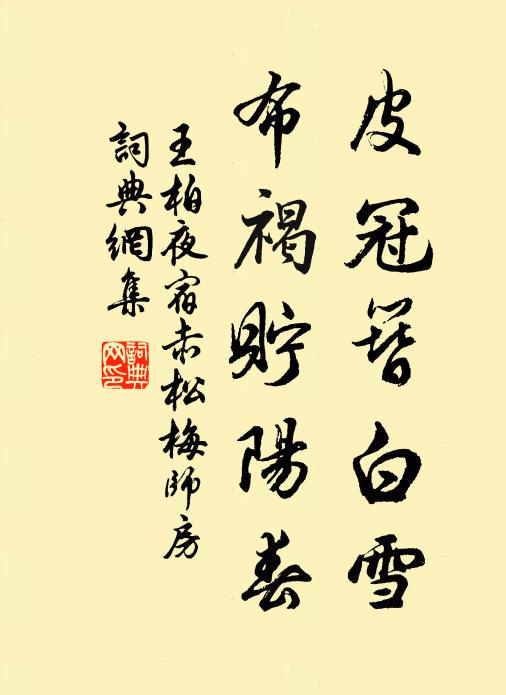 皮冠簪白雪
布褐貯陽春
王柏夜宿赤松梅師房
詞典網集
詞典
网印